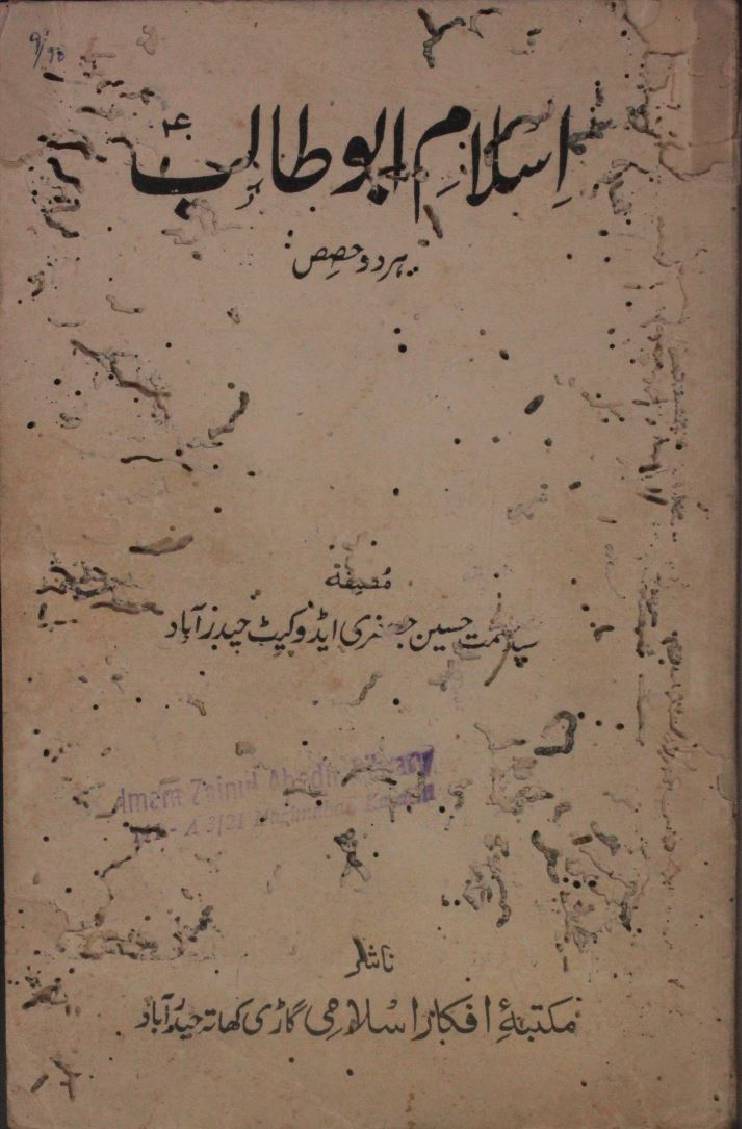 ۹/۹۵
اسلامِ ابو طالبؑ
ہر دو حصص
مصنفہ
سید حشمت حسین جعفری ایڈوکیٹ حیدرآباد
Zainul Abedin Library
ناشر
مکتبۂ افکار اسلامی گاڑی کھاتہ حیدرآباد